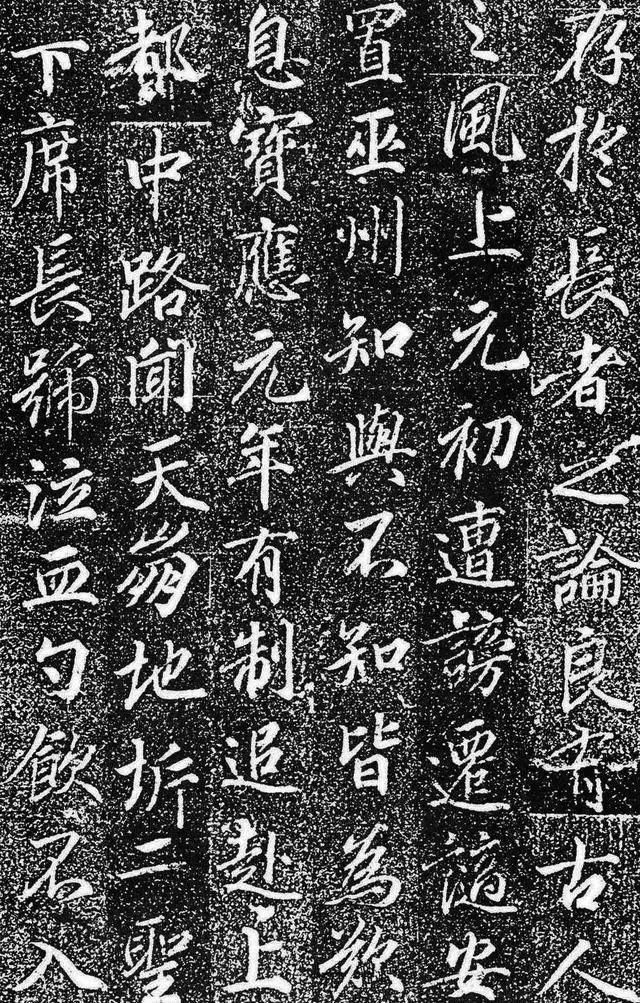 存於長者之論良有古人
之風上元初遭謗遷謫安
置巫州知與不知皆為歎
息寶應元年有制追赴上
都中路聞天崩地坼二聖
下席長號泣血勺飲不入